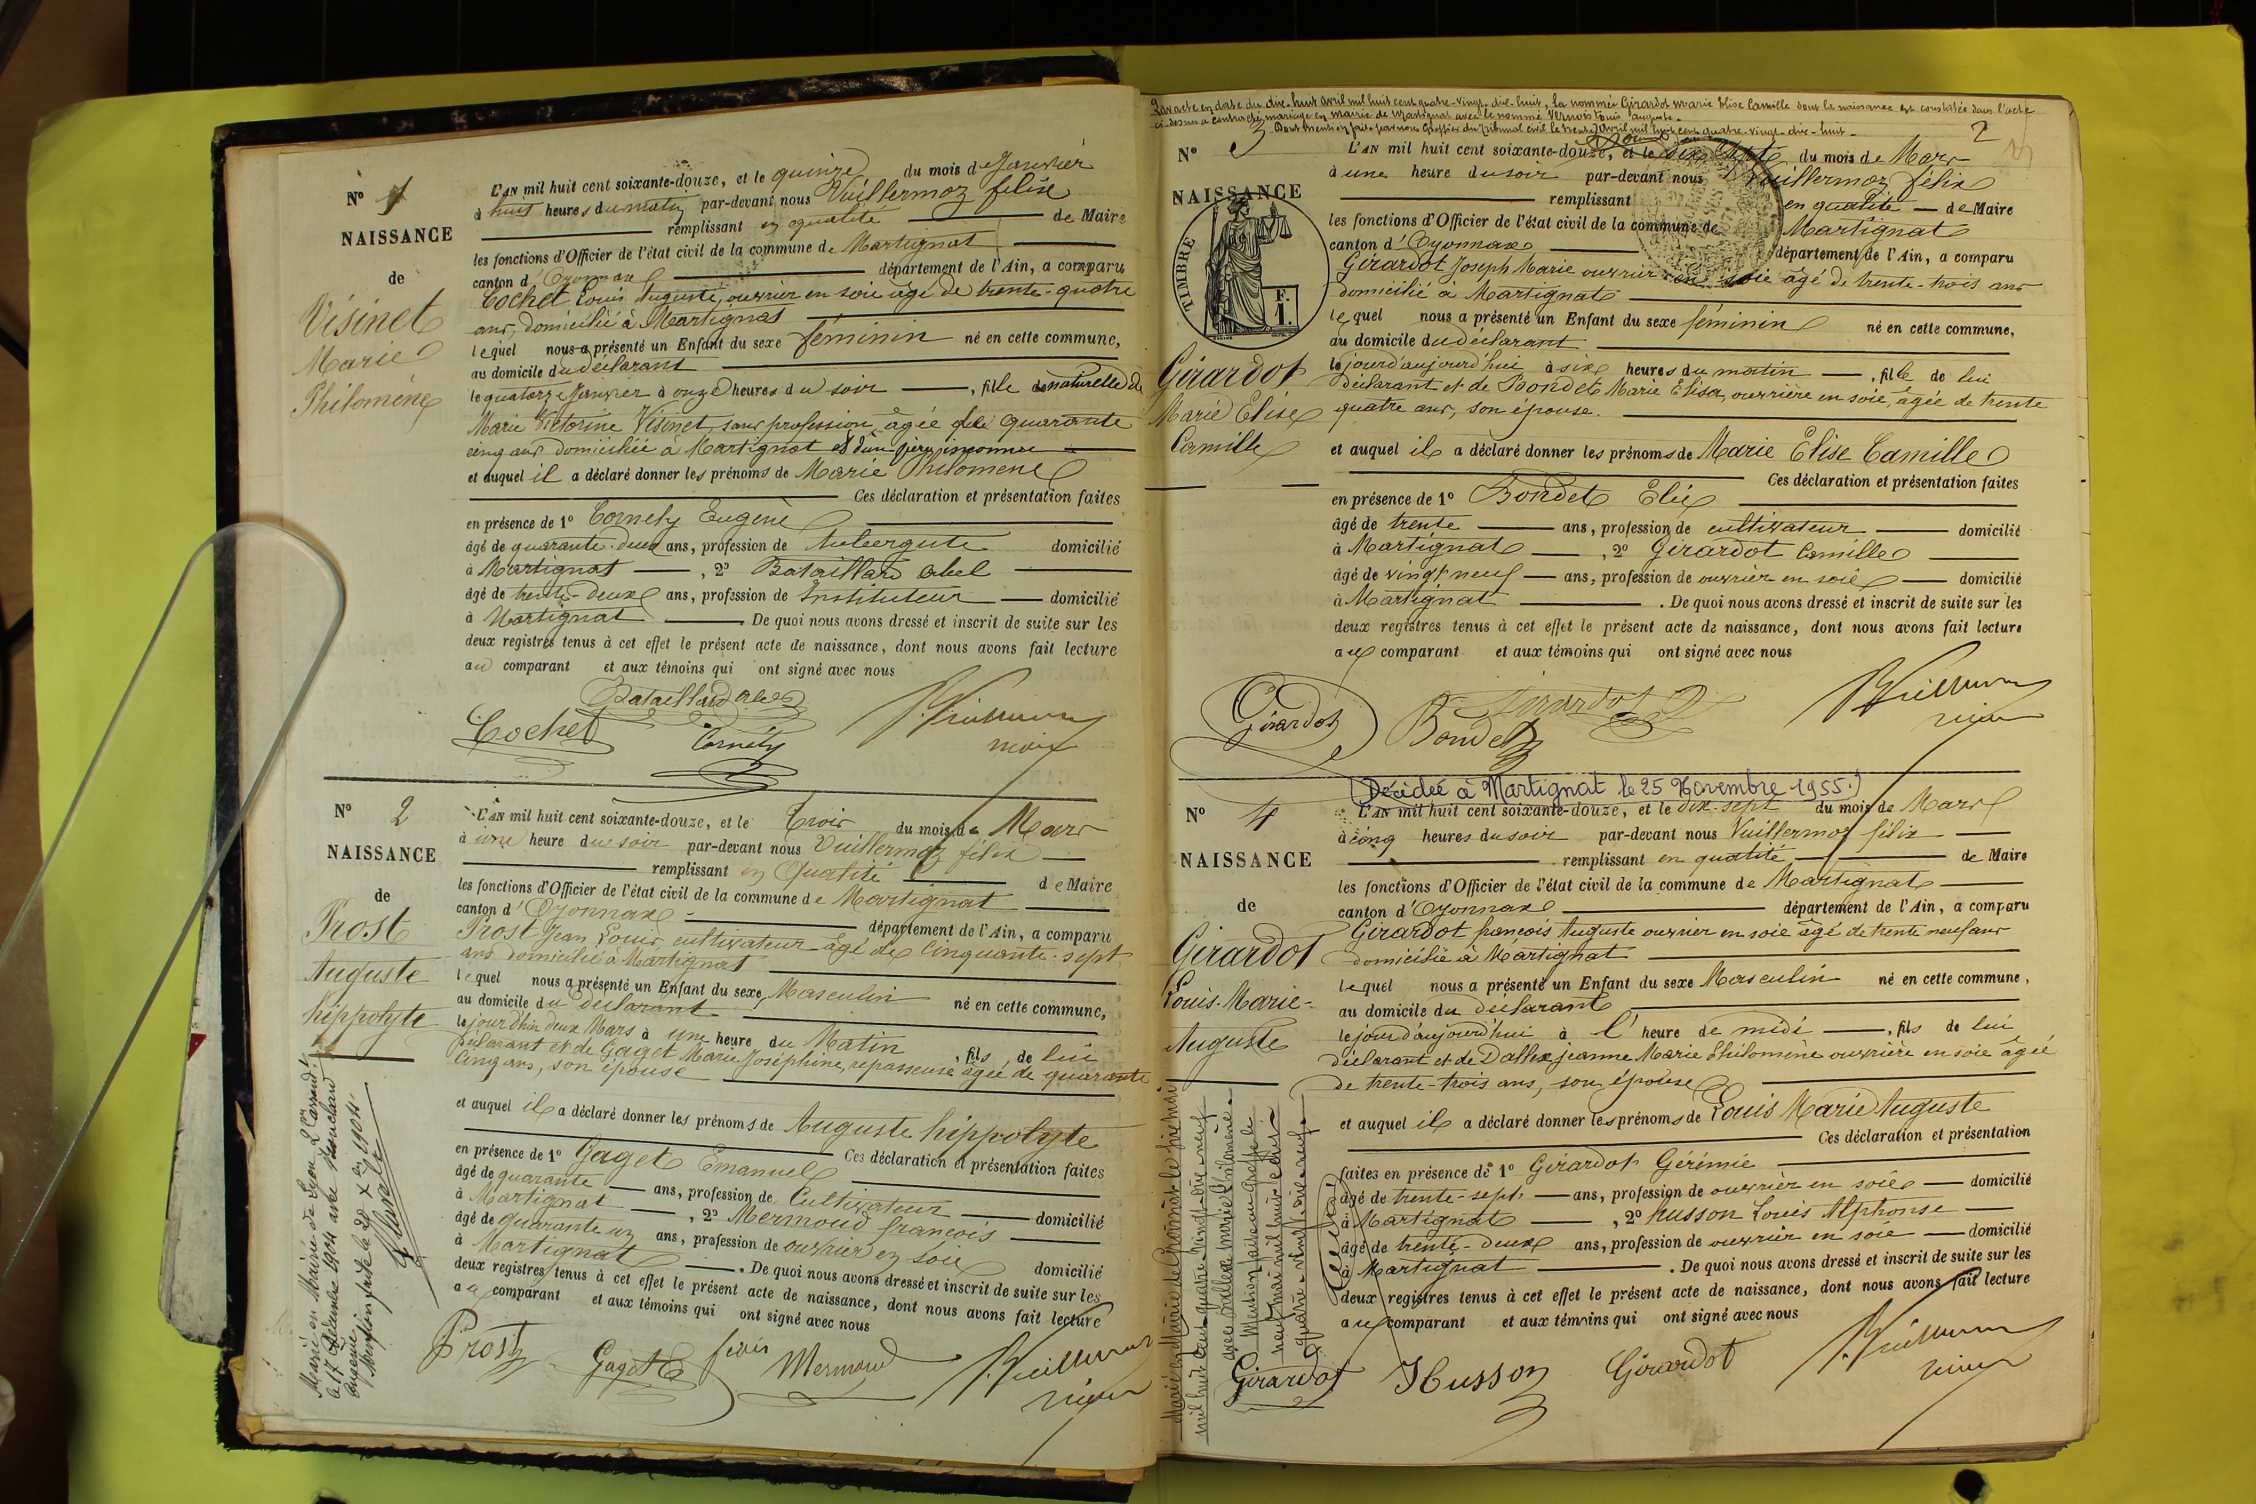 N° 1
NAISSANCE
de
Visinet
Marie
Philomène
L'AN mil huit cent soixante-douze, et le quinze du mois de Janvier
à huit heures du matin par-devant nous Vuillermoz félix
remplissant en qualité de Maire
les fonctions d'Officier de l'état civil de la commune de Martignat
canton d'Oyonnax département de l'Ain, a comparu
Cochet Louis Auguste, ouvrier en soie âgé de trente-quatre
ans, domicilié à Martignat
lequel nous a présenté un Enfant du sexe féminin né en cette commune,
au domicile du déclarant
le quatorze Janvier à onze heures du soir, fille naturelle de
Marie Victorine Visinet, sans profession, âgée de quarante
cinq ans domiciliée à Martignat et d'un père inconnu
et auquel il a déclaré donner les prénoms de Marie Philomène
Ces déclaration et présentation faites
en présence de 1° Cornety Eugène
âgé de quarante-deux ans, profession de Aubergiste domicilié
à Martignat, 2° Bataillard Abel
âgé de trente-deux ans, profession de Instituteur domicilié
à Martignat. De quoi nous avons dressé et inscrit de suite sur les
deux registres tenus à cet effet le présent acte de naissance, dont nous avons fait lecture
au comparant et aux témoins qui ont signé avec nous
Bataillard Abel
Cochet Cornéty
N° 2
NAISSANCE
de
Prost
Auguste
hippolyte
L'AN mil huit cent soixante-douze, et le Trois du mois de Mars
à une heure du soir par-devant nous Vuillermoz félix
remplissant en Qualité de Maire
les fonctions d'Officier de l'état civil de la commune de Martignat
canton d'Oyonnax département de l'Ain, a comparu
Prost Jean Louis, cultivateur âgé de Cinquante-sept
ans domicilié à Martignat
lequel nous a présenté un Enfant du sexe Masculin né en cette commune,
au domicile du déclarant
le jour d'hier deux Mars à une heure du Matin, fils de lui
déclarant et de Gaget Marie Joséphine, repasseuse âgée de quarante
Cinq ans, son épouse
et auquel il a déclaré donner les prénoms de Auguste hippolyte
Ces déclaration et présentation faites
en présence de 1° Gaget Emanuel
âgé de quarante ans, profession de Cultivateur domicilié
à Martignat, 2° Mermoud françois
âgé de quarante un ans, profession de ouvrier en soie domicilié
à Martignat. De quoi nous avons dressé et inscrit de suite sur les
deux registres tenus à cet effet le présent acte de naissance, dont nous avons fait lecture
au comparant et aux témoins qui ont signé avec nous
Prost Gaget Mermoud
Marié en Mairie de Lyon
le 17 Décembre 1904 avec
Eugénie
2
Par acte en date du dix-huit avril mil huit cent quatre-vingt-dix-huit, la nommée Girardot Marie Elise Camille dont la naissance est constatée dans l'acte
ci-dessous a contracté mariage en mairie de Martignat avec le nommé Vernois Louis Auguste.
Dont mention faite par nous Greffier du Tribunal civil le trente avril mil huit cent quatre-vingt-dix-huit.
N° 3
NAISSANCE
TIMBRE
F.
1.
Girardot
Marie Elise
Camille
L'AN mil huit cent soixante-douze, et le dix sept du mois de Mars
à une heure du soir par-devant nous Vuillermoz félix
remplissant en qualité de Maire
les fonctions d'Officier de l'état civil de la commune de Martignat
canton d'Oyonnax département de l'Ain, a comparu
Girardot Joseph Marie ouvrier en soie âgé de trente-trois ans
domicilié à Martignat
lequel nous a présenté un Enfant du sexe féminin né en cette commune,
au domicile du déclarant
le jourd'aujourd'hui à six heures du matin, fille de lui
déclarant et de Bondet Marie Elisa, ouvrière en soie, âgée de trente
quatre ans, son épouse.
et auquel il a déclaré donner les prénoms de Marie Elise Camille
Ces déclaration et présentation faites
en présence de 1° Bondet Elie
âgé de trente ans, profession de cultivateur domicilié
à Martignat, 2° Girardot Camille
âgé de vingt neuf ans, profession de ouvrier en soie domicilié
à Martignat. De quoi nous avons dressé et inscrit de suite sur les
deux registres tenus à cet effet le présent acte de naissance, dont nous avons fait lecture
au comparant et aux témoins qui ont signé avec nous
Girardot Bondet Girardot
(Décédée à Martignat le 25 Novembre 1955.)
N° 4
NAISSANCE
de
Girardot
Louis-Marie-
Auguste
L'AN mil huit cent soixante-douze, et le dix-sept du mois de Mars
à cinq heures du soir par-devant nous Vuillermoz félix
remplissant en qualité de Maire
les fonctions d'Officier de l'état civil de la commune de Martignat
canton d'Oyonnax département de l'Ain, a comparu
Girardot françois Auguste ouvrier en soie âgé de trente neuf ans
domicilié à Martignat
lequel nous a présenté un Enfant du sexe Masculin né en cette commune,
au domicile du déclarant
le jourd'aujourd'hui à l'heure de midi, fils de lui
déclarant et de Dallex jeanne Marie Philomène ouvrière en soie âgée
de trente-trois ans, son épouse
et auquel il a déclaré donner les prénoms de Louis Marie Auguste
Ces déclaration et présentation
faites en présence de 1° Girardot Gérémie
âgé de trente-sept ans, profession de ouvrier en soie domicilié
à Martignat, 2° husson Louis Alphonse
âgé de trente-deux ans, profession de ouvrier en soie domicilié
à Martignat. De quoi nous avons dressé et inscrit de suite sur les
deux registres tenus à cet effet le présent acte de naissance, dont nous avons fait lecture
au comparant et aux témoins qui ont signé avec nous
Girardot Husson Girardot